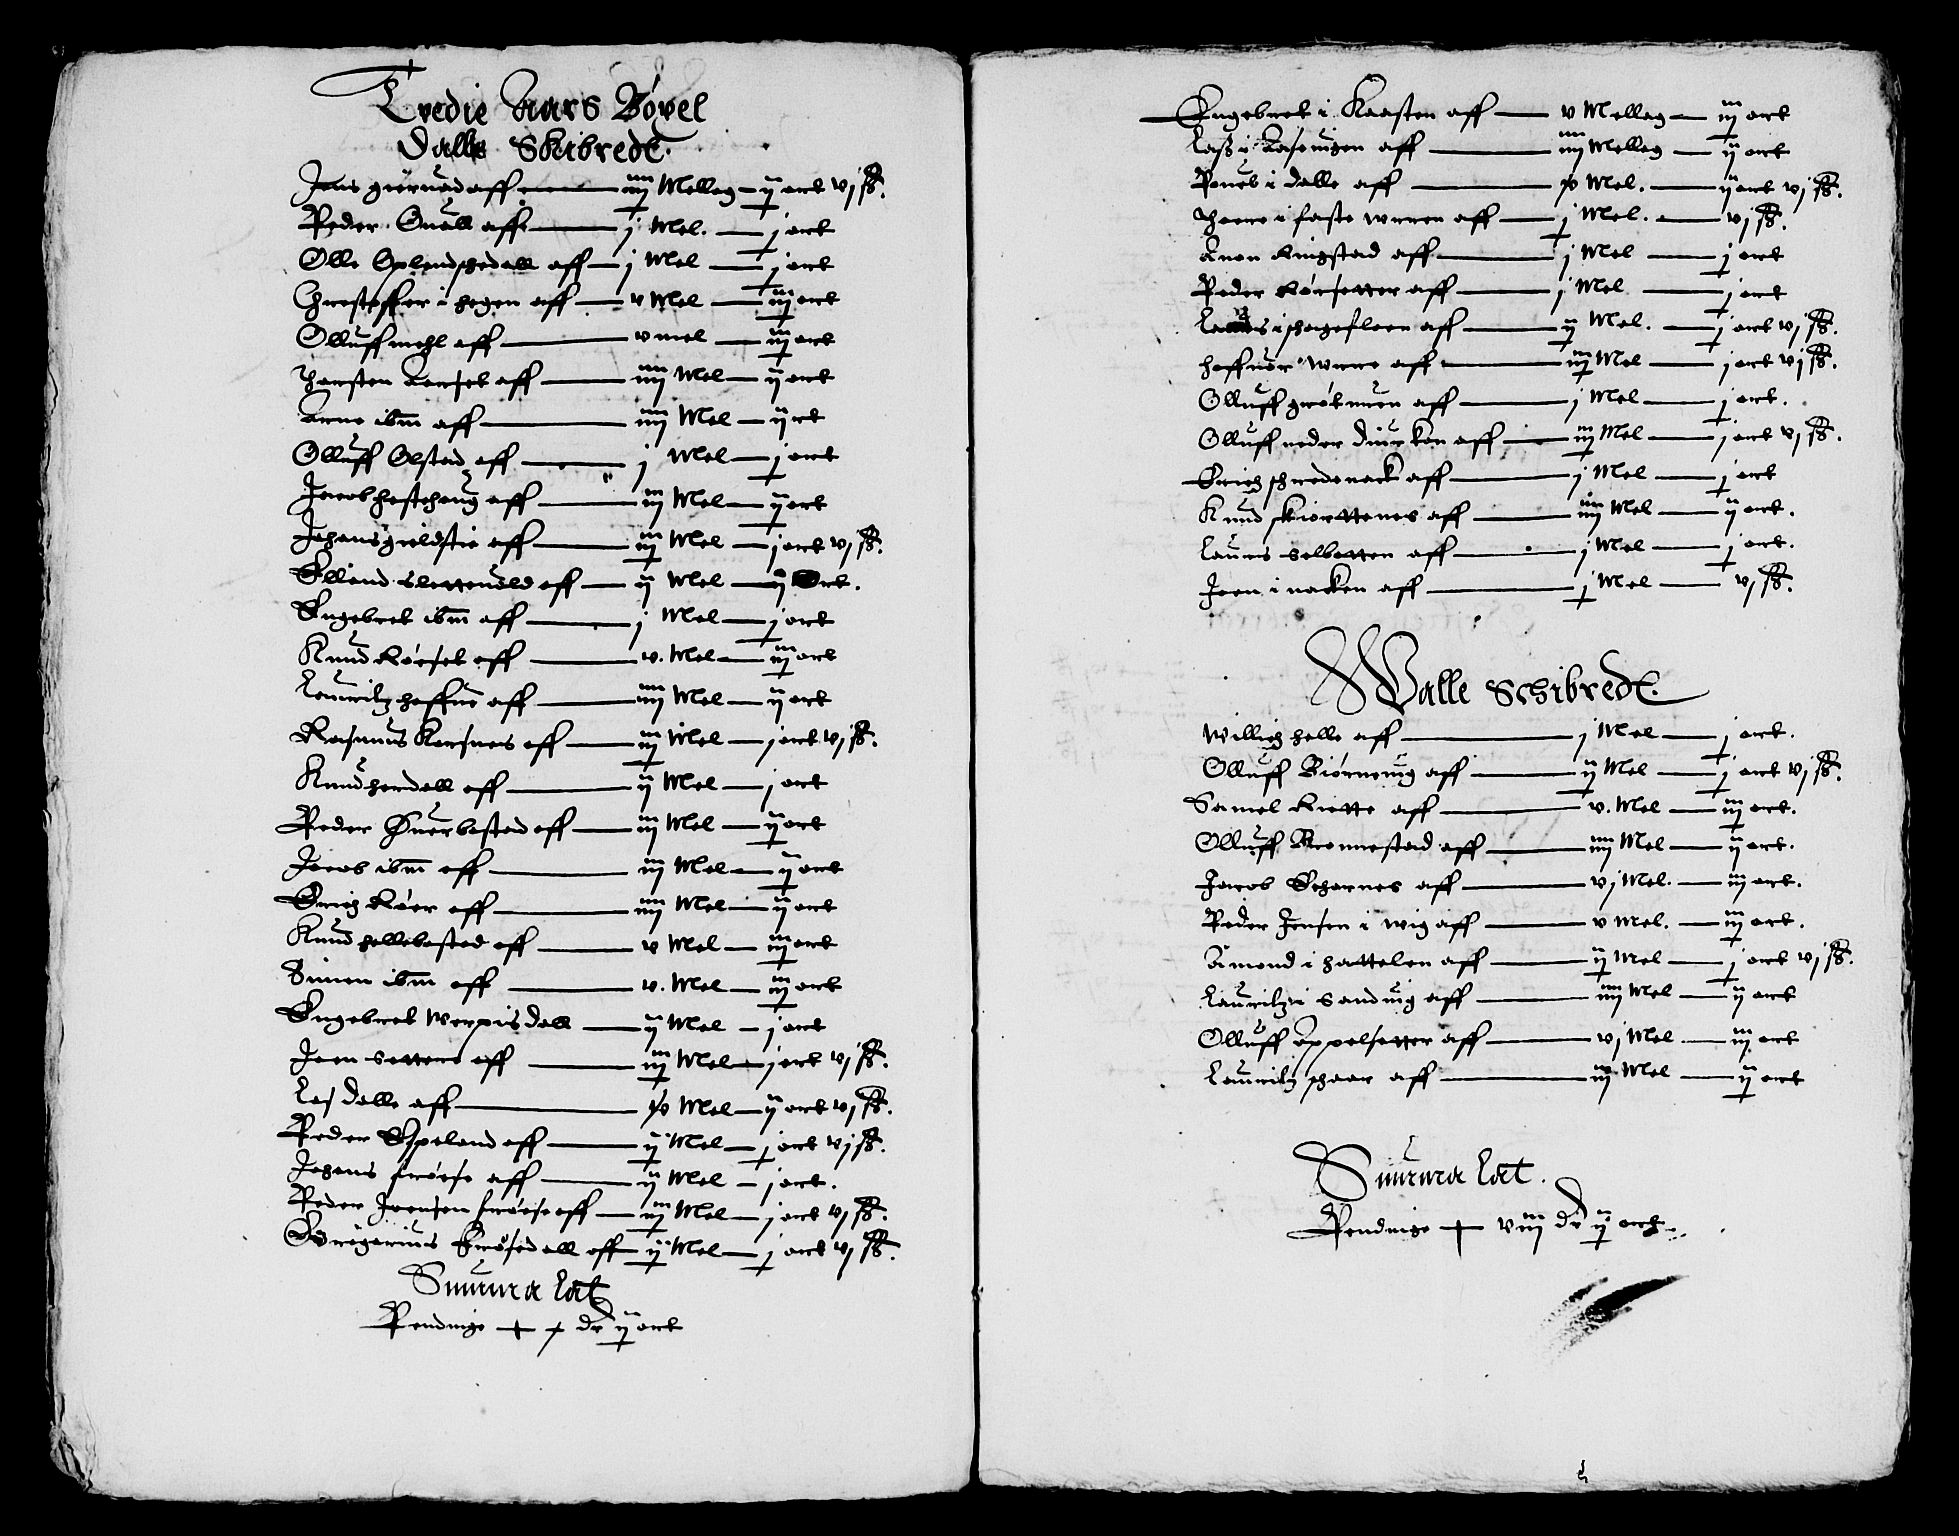 Tredie Aars Bøxel
Dalle Skibrede.
Jens giørud aff — iiij Mellag — ij ort vj ß.
Peder Quall aff — j Mel. — j ort
Olle Oplendschedall aff — j Mel — j ort
Christoffer i hagen aff — v Mel — iij ort
Olluff mehl aff — v mel — iij ort
Thorsten aff — iiij Mel — ij ort
Arne ibm aff — iiij Mel — ij ort
Olluff Olstad aff — j Mel — j ort
Jacob hestehaug aff — iij Mel — ij ort
Johans gieldstie aff — iij Mel — j ort vj ß.
Elland aff — ij Mel — ij Ort.
Engebret ibm aff — j Mel — j ort
Knud Rørset aff — v. Mel — iij ort
Lauritz haffue aff — iiij Mel — ij ort
Rasmus Korsnes aff — iij Mel — j ort vj ß.
Knud hordall aff — ij Mel — j ort
Peder Øuerbostad aff — iij Mel — ij ort
Jacob ibm aff — iij Mel — ij ort
Erich Røer aff — iiij Mel — ij ort
Knud hellebostad aff — v Mel — iij ort
Simen ibm aff — v. Mel — iij ort
Engebret Werpisdall — ij Mel — j ort
Joen Settene aff — iij Mel — j ort vj ß.
Las dalle aff — Mel — ij ort vj ß.
Peder Espeland aff — ij Mel — j ort vj ß.
Johans frøise aff — ij Mel — j ort.
Peder Joensen frøise aff — iij Mel — j ort vj ß.
Gregorius Frøsedall aff — ij Mel — j ort vj ß.
Summa Lat
Pendinge — x dr ij ort
Engebret i Kaasten aff — v Mellag — iij ort
Lass i aff — iiij Mellag — ij ort
Pouel i dalle aff — Mel. — ij ort vj ß.
Thore i faste aff — j Mel. — vj ß.
Anon Ringstad aff — j Mel — j ort
Peder Rørsetter aff — j Mel — j ort
i aff — ij Mel. — j ort vj ß.
haffuer aff — iij Mel — j ort vj ß.
Olluff grøtmuren aff — j Mel — j ort.
Olluff neder aff — iij Mel — j ort vj ß.
Erich schredenack aff — j Mel — j ort
Knud skiorttenes aff — iiij Mel — ij ort.
Laures selbotten aff — j Mel — j ort.
Joen i nacken aff — j Mel — vj ß.
Walle Schibrede.
Willich helle aff — j Mel — j ort.
Olluff Biørneuig aff — ij Mel — j ort vj ß.
Samel Riette aff — v. Mel — iij ort.
Olluff Bronnestad aff — iiij Mel — ij ort.
Jacob Scharnes aff — vj Mel. — iij ort.
Peder Jensen i wig aff — v mel. — iij ort.
Amond i hattelen aff — ij Mel — j ort vj ß.
Lauritz i Sanduig aff — iiij Mel — ij ort
Olluff Eppelsetter aff — vj Mel — iij ort
Lauritz schaar aff — iij Mel — ij ort
Summa Lat.
Pendinge — viij dr ij ort